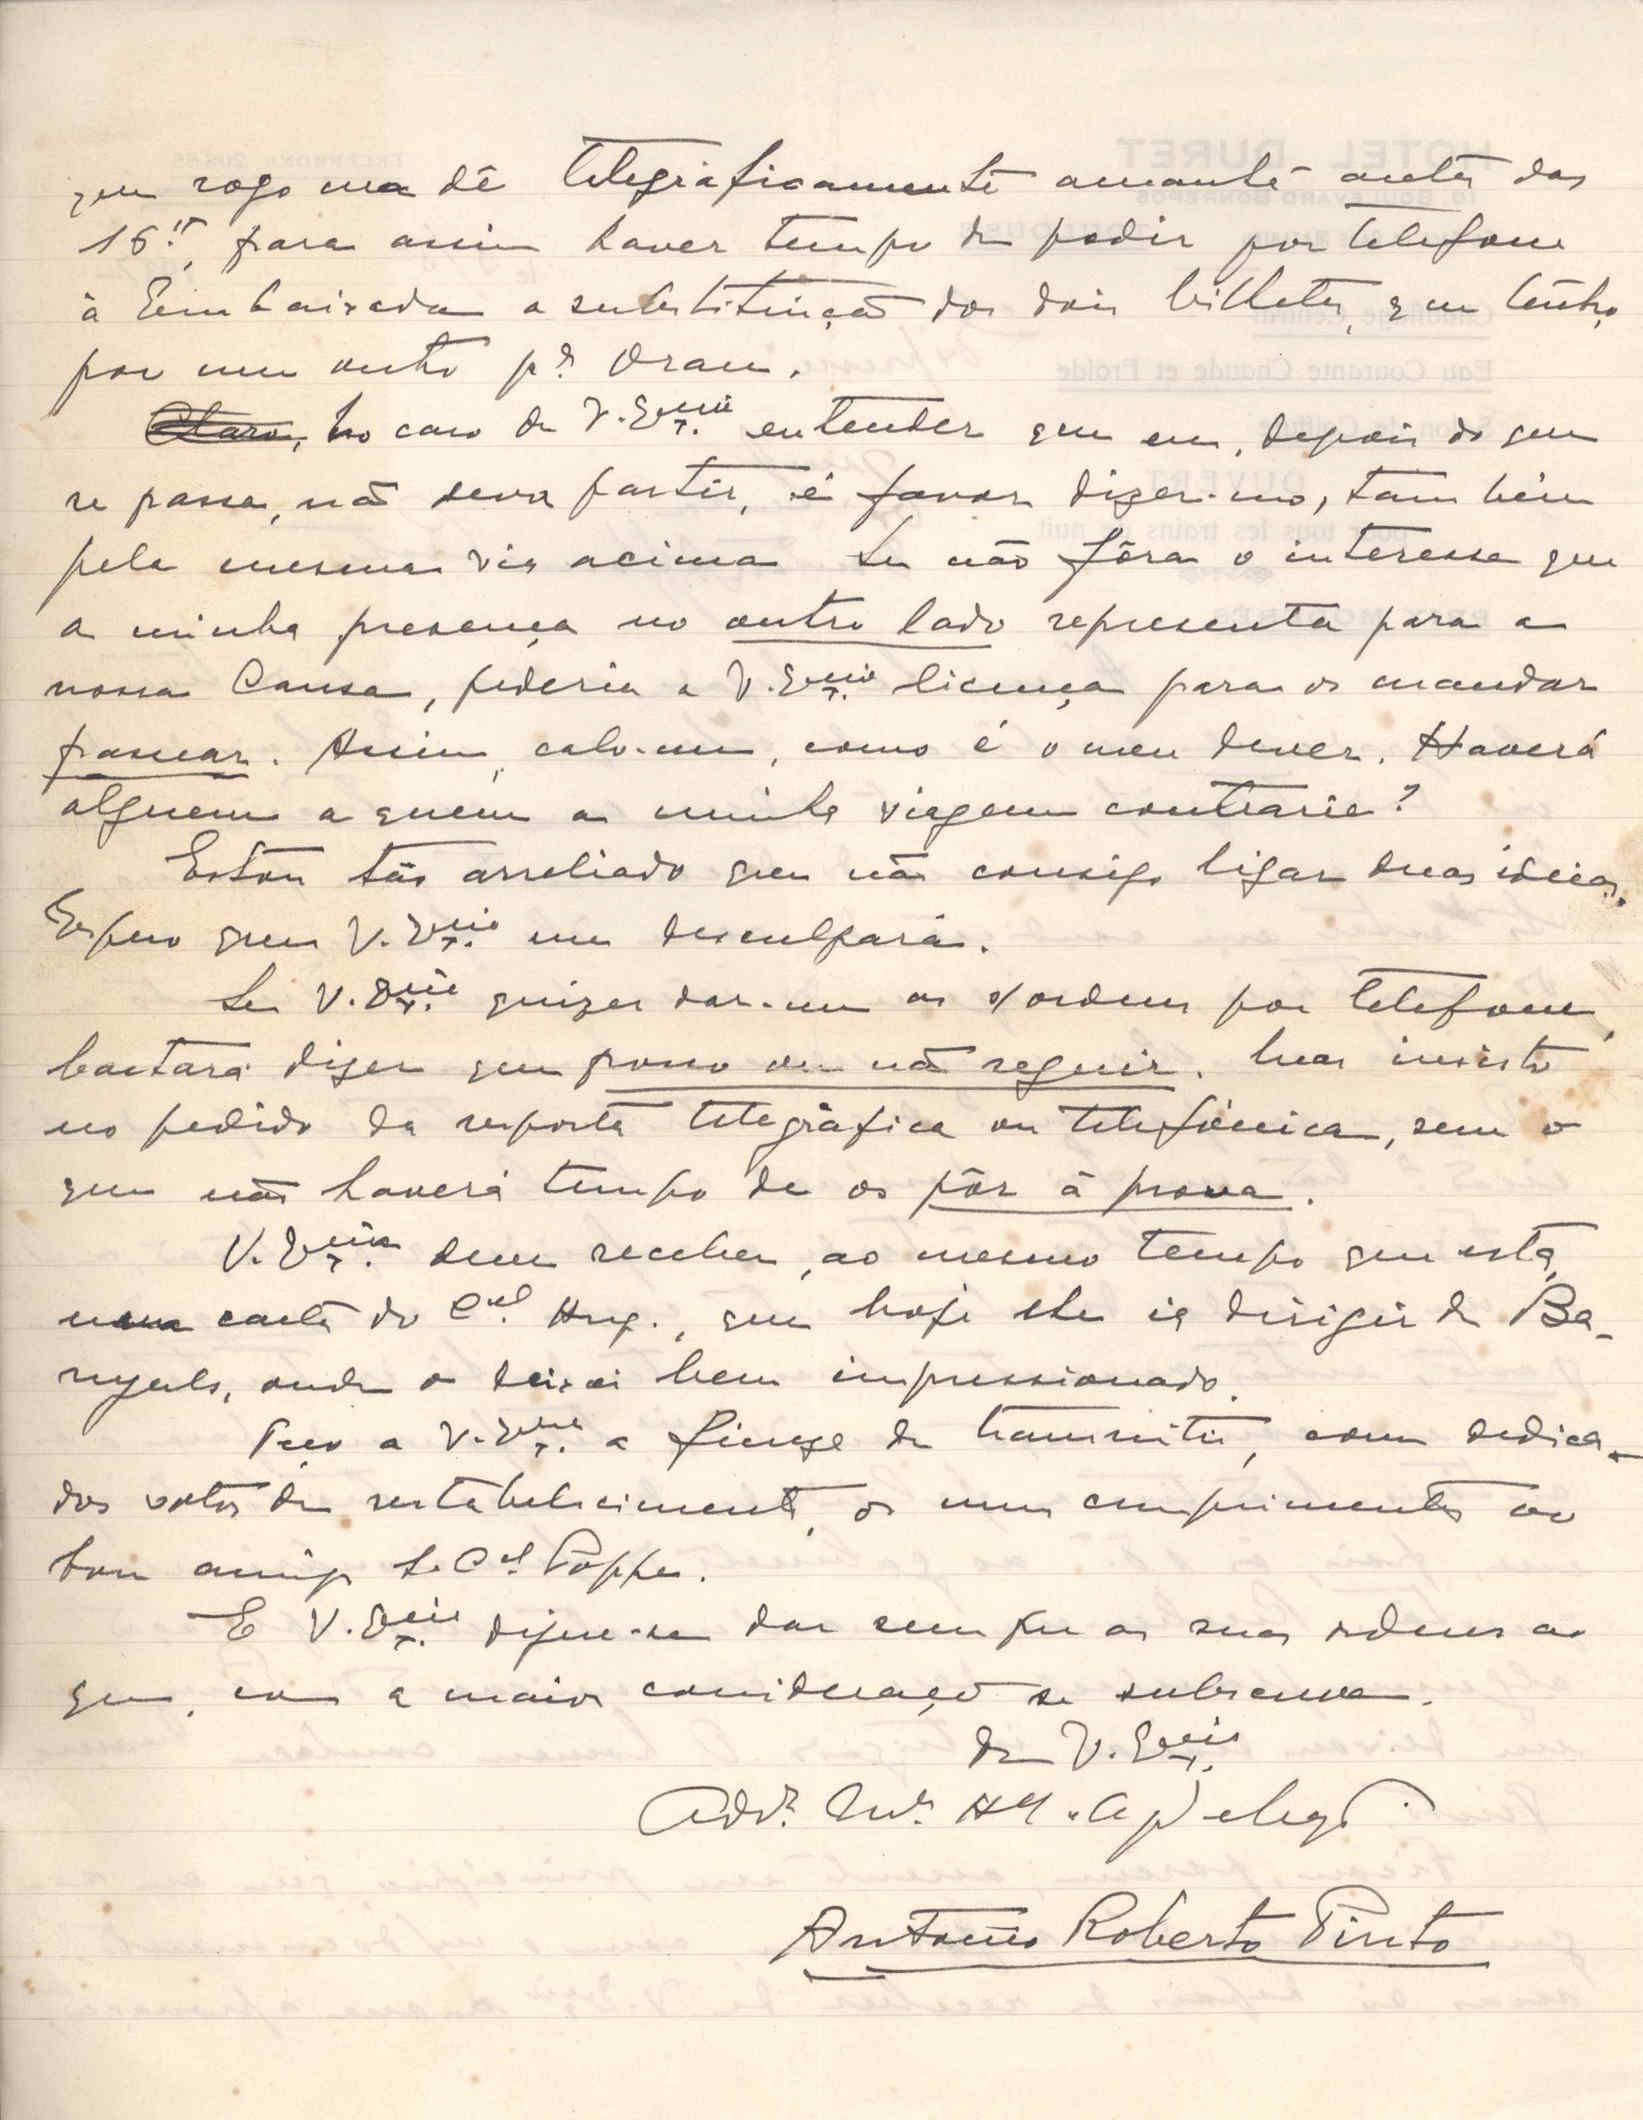 que rogo ma dê telegráficamente amanhã antes das
16.ʰ, para assim haver tempo de pedir por telefone
à Embaixada a substituição dos dois bilhetes, que tenho,
por um outro p.ª Oran.
Claro, no caso de V. Ex.cia entender que eu, depois do que
se passa, não deva partir, é favor dizer-mo, tambêm
pela mesma via acima. Se não fôra o interesse que
a minha presença no outro lado representa para a
nossa Causa, pediria a V. Ex.cia licença para os mandar
passear. Assim, calo-me, como é o meu dever. Haverá
alguem a quem a minha viagem contrarie?
Estou tão arreliado que não consigo ligar duas ideias.
Espero que V. Ex.cia me desculpará.
Se V. Ex.cia quizer dar-me as s/ ordens por telefone,
bastará dizer que posso ou não seguir. Mas insisto
no pedido da resposta telegráfica ou telefónica, sem o
que não haverá tempo de os pôr à prova.
V. Ex.cia deve receber, ao mesmo tempo que esta,
uma carta do C.el Hug., que hoje lhe ia dirigir de Ba-
nyuls, onde o deixei bem impressionado.
Peço a V. Ex.cia a fineza de transmitir, com dedica-
dos votos de restabelecimento, os meus cumprimentos ao
bom amigo Sr. C.el Poppe.
E V. Ex.cia digne-se dar sempre as suas ordens ao
que, com a maior consideração se subscreve.
de V. Ex.cia
Antonio Roberto Pinto
HOTEL DURET
10, BOULEVARD BONREPOS
TELEPHONE
TOULOUSE
Chauffage Central
Eau Courante Chaude et Froide
Salon de Coiffure
OUVERT
pour tous les trains de nuit